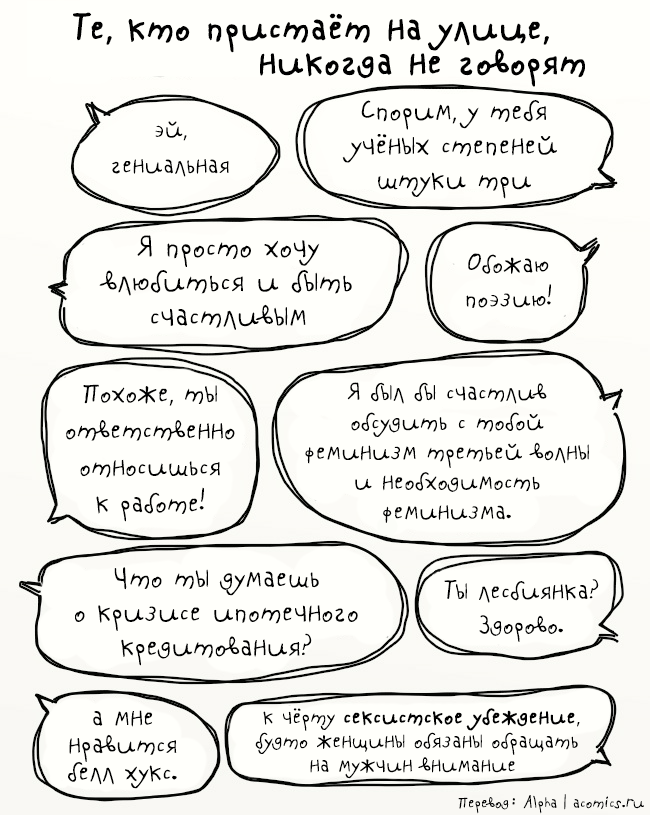 Те, кто пристаёт на улице,
никогда не говорят
эй,
гениальная
Спорим, у тебя
учёных степеней
штуки три
Я просто хочу
влюбиться и быть
счастливым
Обожаю
поэзию!
Похоже, ты
ответственно
относишься
к работе!
Я был бы счастлив
обсудить с тобой
феминизм третьей волны
и необходимость
феминизма.
Что ты думаешь
о кризисе ипотечного
кредитования?
Ты лесбиянка?
Здорово.
а мне
нравится
белл хукс.
к чёрту сексистское убеждение,
будто женщины обязаны обращать
на мужчин внимание
Перевод: Alpha | acomics.ru